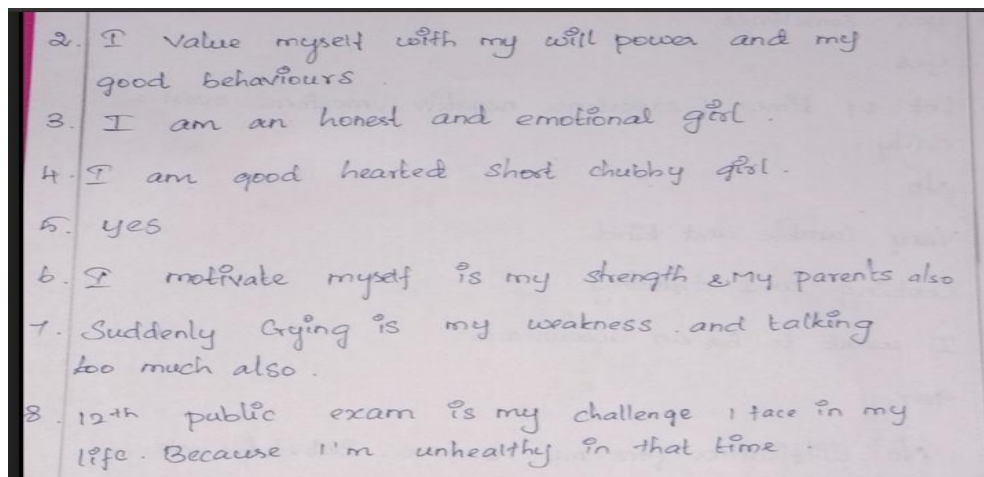 2. I value myself with my will power and my
good behaviours
3. I am an honest and emotional girl.
4. I am good hearted short chubby girl.
5. yes
6. I motivate myself is my strength & My parents also
7. Suddenly Crying is my weakness. and talking
too much also.
8. 12th public exam is my challenge I face in my
life. Because I'm unhealthy in that time.